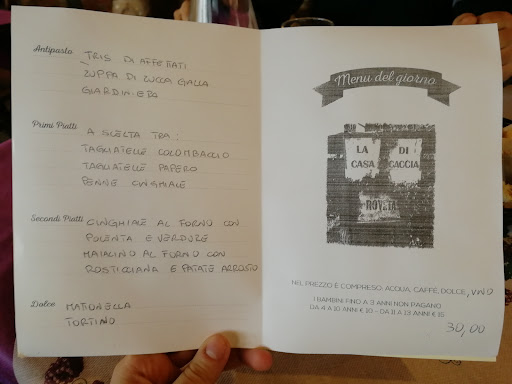 Antipasto
TRIS DI AFFETTATI
ZUPPA DI ZUCCA GIALLA
GIARDINIERA
Primi Piatti
A SCELTA TRA:
TAGLIATELLE COLOMBACCIO
TAGLIATELLE PAPERO
PENNE CINGHIALE
Secondi Piatti
CINGHIALE AL FORNO CON
POLENTA E VERDURE
MAIALINO AL FORNO CON
ROSTICIANA E PATATE ARROSTO
Dolce
MATTONELLA
TORTINO
Menu del giorno
LA DI
CASA CACCIA
ROVETA
NEL PREZZO È COMPRESO: ACQUA, CAFFÈ, DOLCE, VINO
I BAMBINI FINO A 3 ANNI NON PAGANO
DA 4 A 10 ANNI € 10 - DA 11 A 13 ANNI € 15
30,00